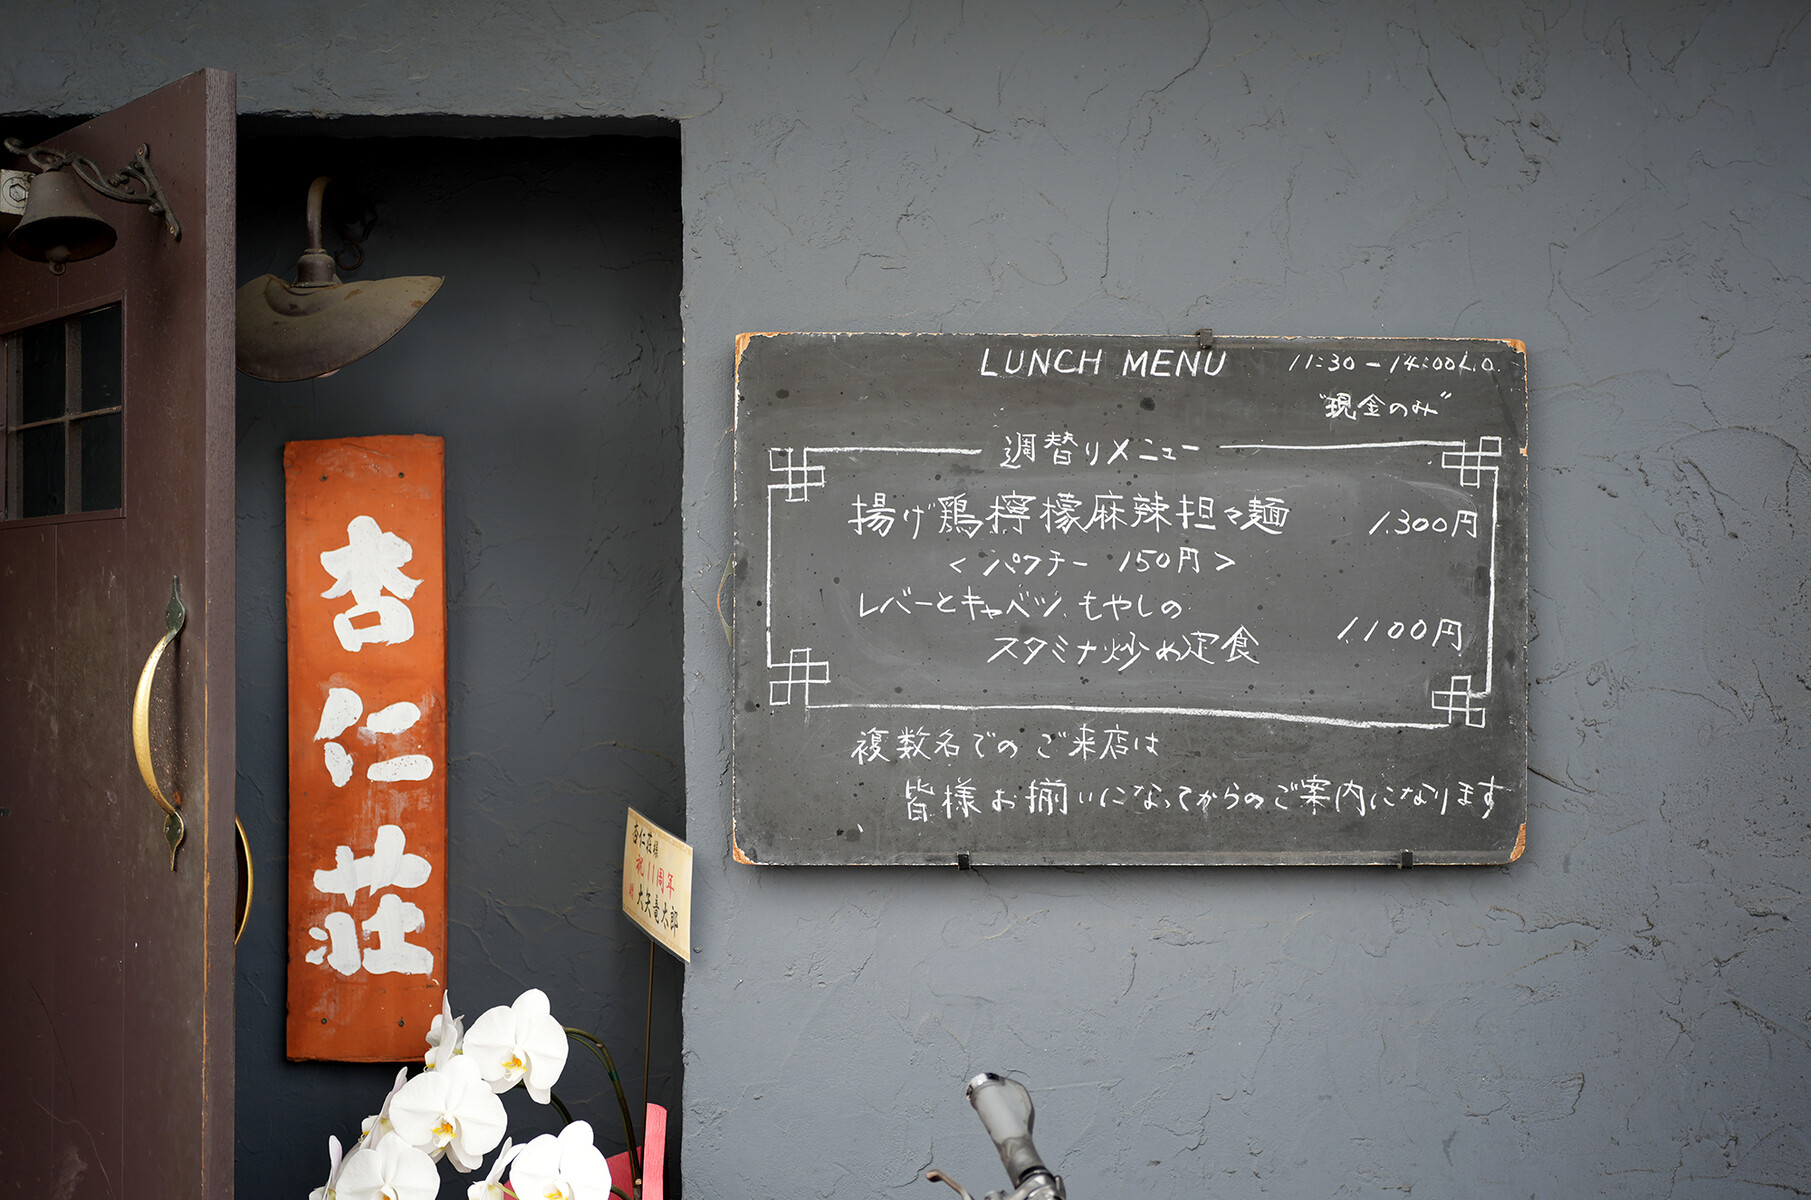 杏仁荘
杏仁荘様
祝11周年
大矢竜太郎
LUNCH MENU 11:30-14:00L.O.
"現金のみ"
週替りメニュー
揚げ鶏檸檬麻辣担々麺 1.300円
<パクチー 150円>
レバーとキャベツ、もやしの
スタミナ炒め定食 1.100円
複数名でのご来店は
皆様お揃いになってからのご案内になります